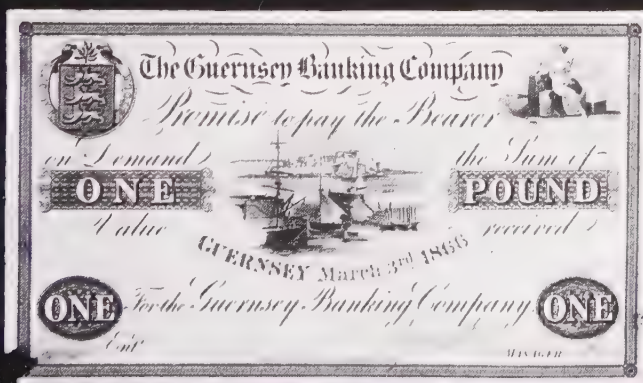 The Guernsey Banking Company
Promise to pay the Bearer
on Demand the Sum of
ONE POUND
Value received
GUERNSEY March 3rd 1866
ONE For the Guernsey Banking Company ONE
Ent
MANAGER